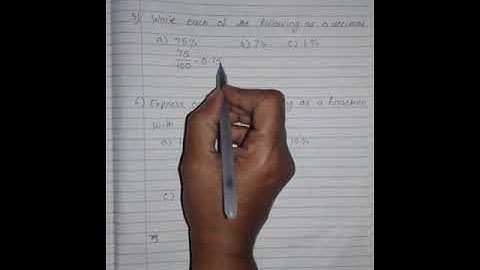 5) Write each of the following as a decimal
a) 75% b) 7% c) 1%
75
100 = 0.75
6) Express as a fraction
with
a) 10%
c)